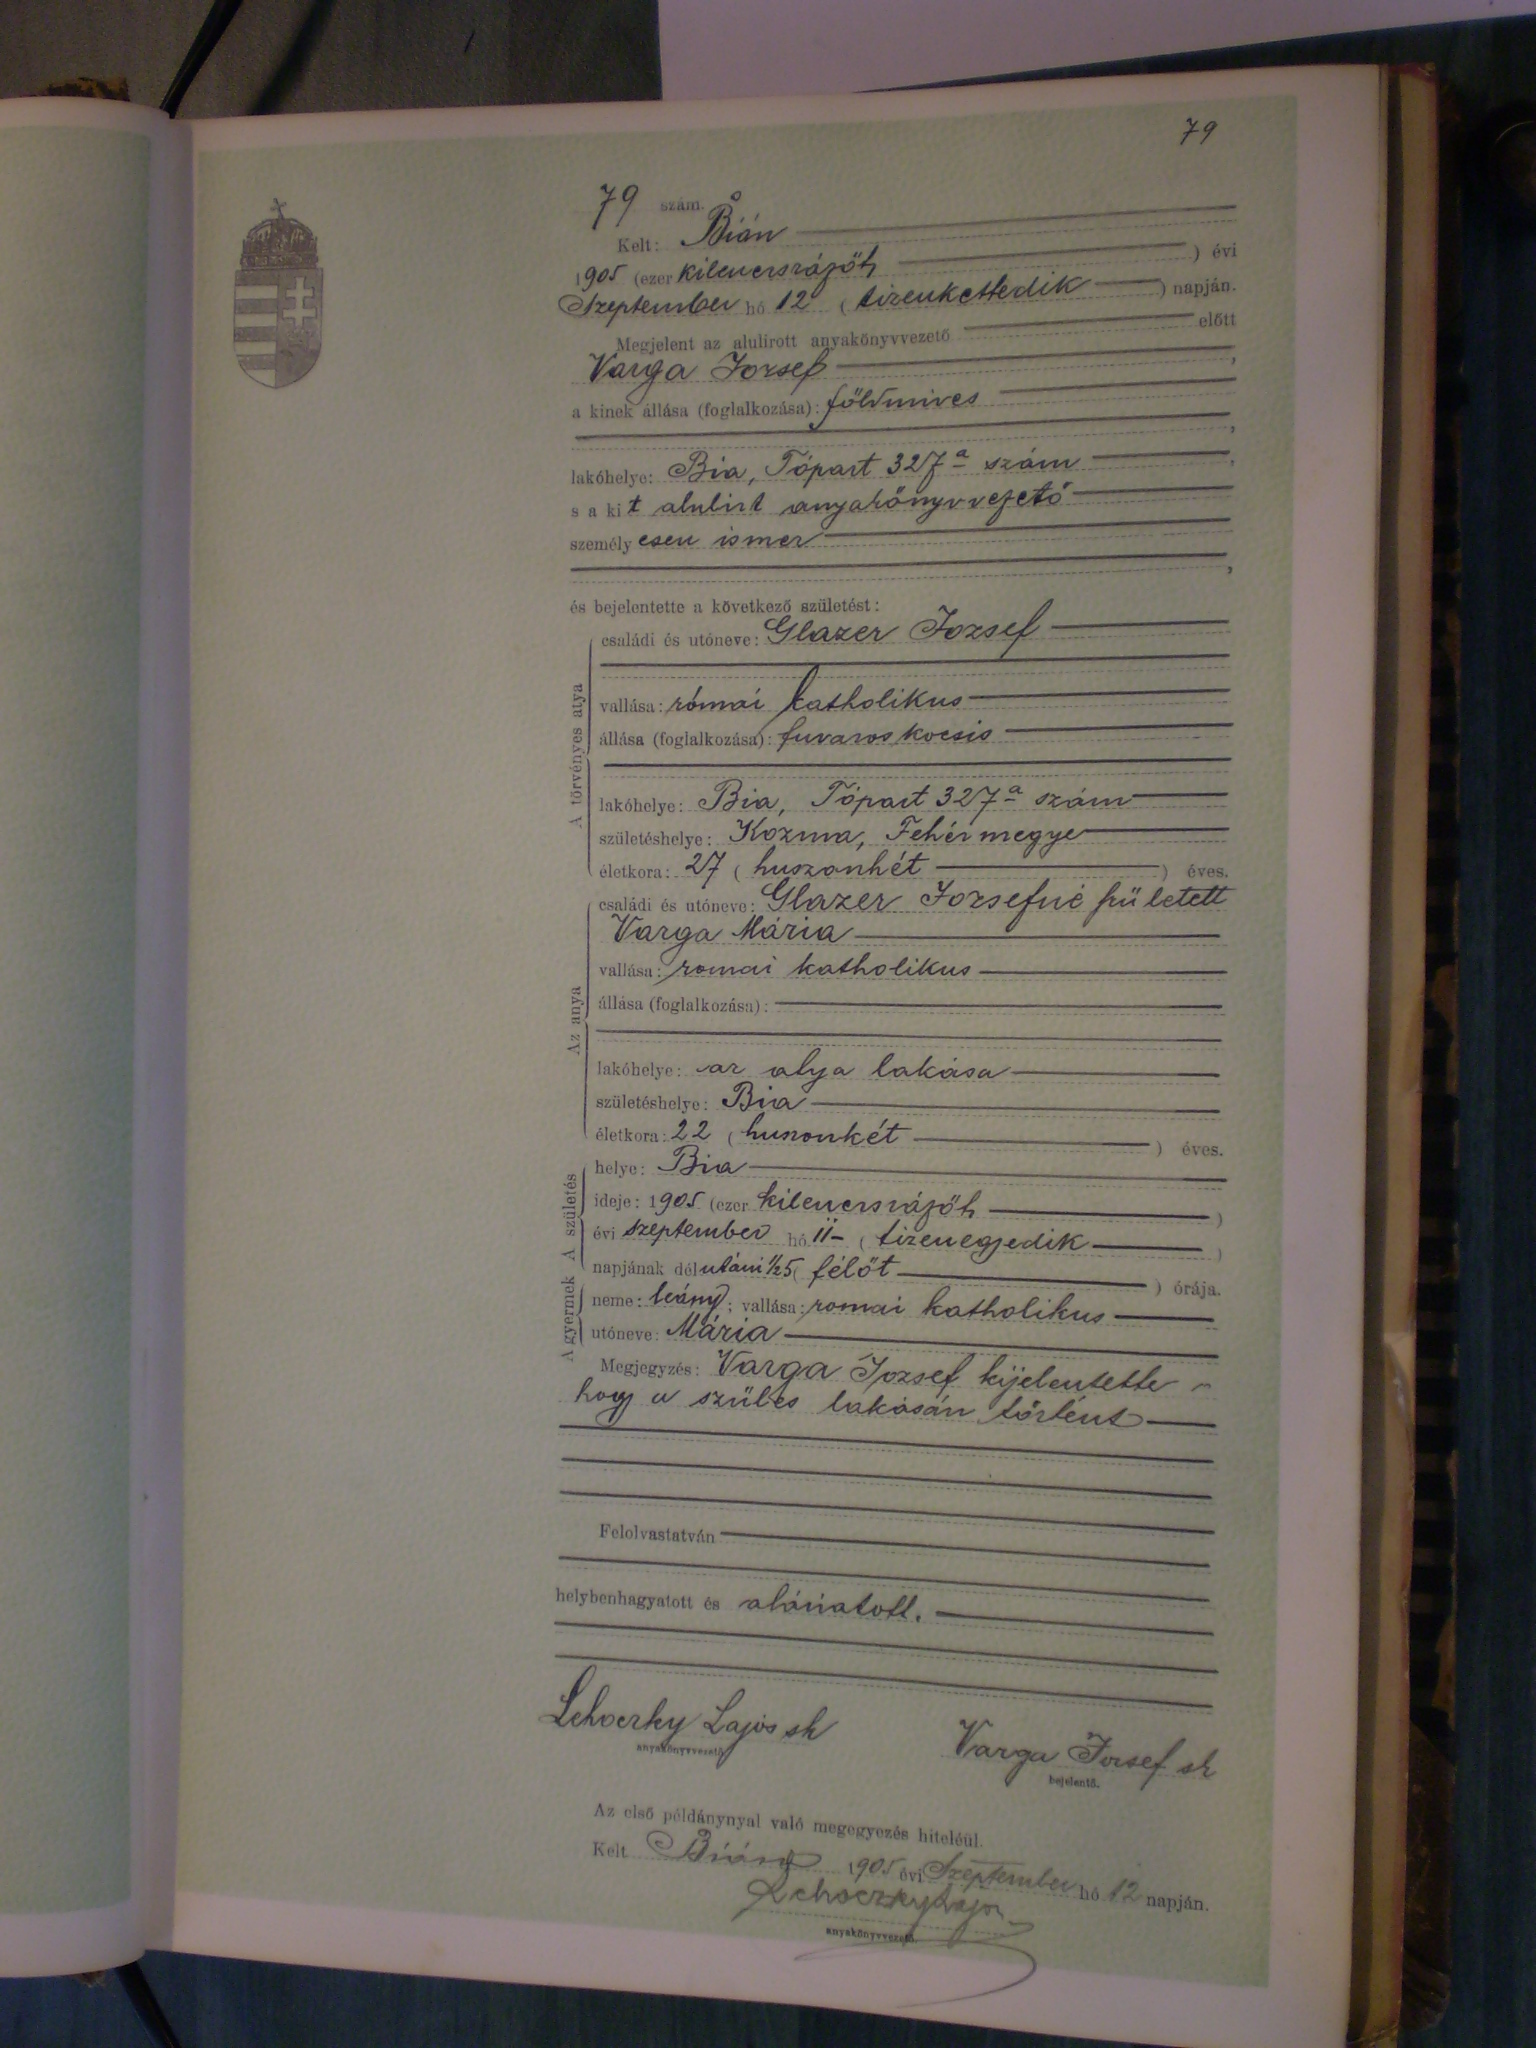 79
79 szám.
Kelt: Bián
1905 (ezer kilencszázöt) évi
Szeptember hó 12 (tizenkettedik) napján.
Megjelent az alulirott anyakönyvvezető előtt
Varga Jozsef,
a kinek állása (foglalkozása): földmives,
lakóhelye: Bia, Tópart 327a szám,
s a kit alulirt anyakönyvvezető
személyesen ismer,
és bejelentette a következő születést:
A törvényes atya
családi és utóneve: Glazer Jozsef
vallása: római katholikus
állása (foglalkozása): fuvaros kocsis
lakóhelye: Bia, Tópart 327a szám
születéshelye: Kozma, Fehér megye
életkora: 27 (huszonhét) éves.
Az anya
családi és utóneve: Glazer Jozsefné született
Varga Mária
vallása: romai katholikus
állása (foglalkozása):
lakóhelye: az atya lakása
születéshelye: Bia
életkora: 22 (huszonkét) éves.
A születés
helye: Bia
ideje: 1905 (ezer kilencszázöt)
évi szeptember hó 11 (tizenegyedik)
napjának délutáni ½5 (félöt) órája.
A gyermek
neme: leány; vallása: romai katholikus
utóneve: Mária
Megjegyzés: Varga Jozsef kijelentette
hogy a szülés lakásán történt
Felolvastatván
helybenhagyatott és aláiratott.
Lehoczky Lajos sk Varga Jozsef sk
anyakönyvvezető bejelentő.
Az első példánynyal való megegyezés hiteléül.
Kelt Bián 1905 évi Szeptember hó 12 napján.
Lehoczky Lajos
anyakönyvvezető.